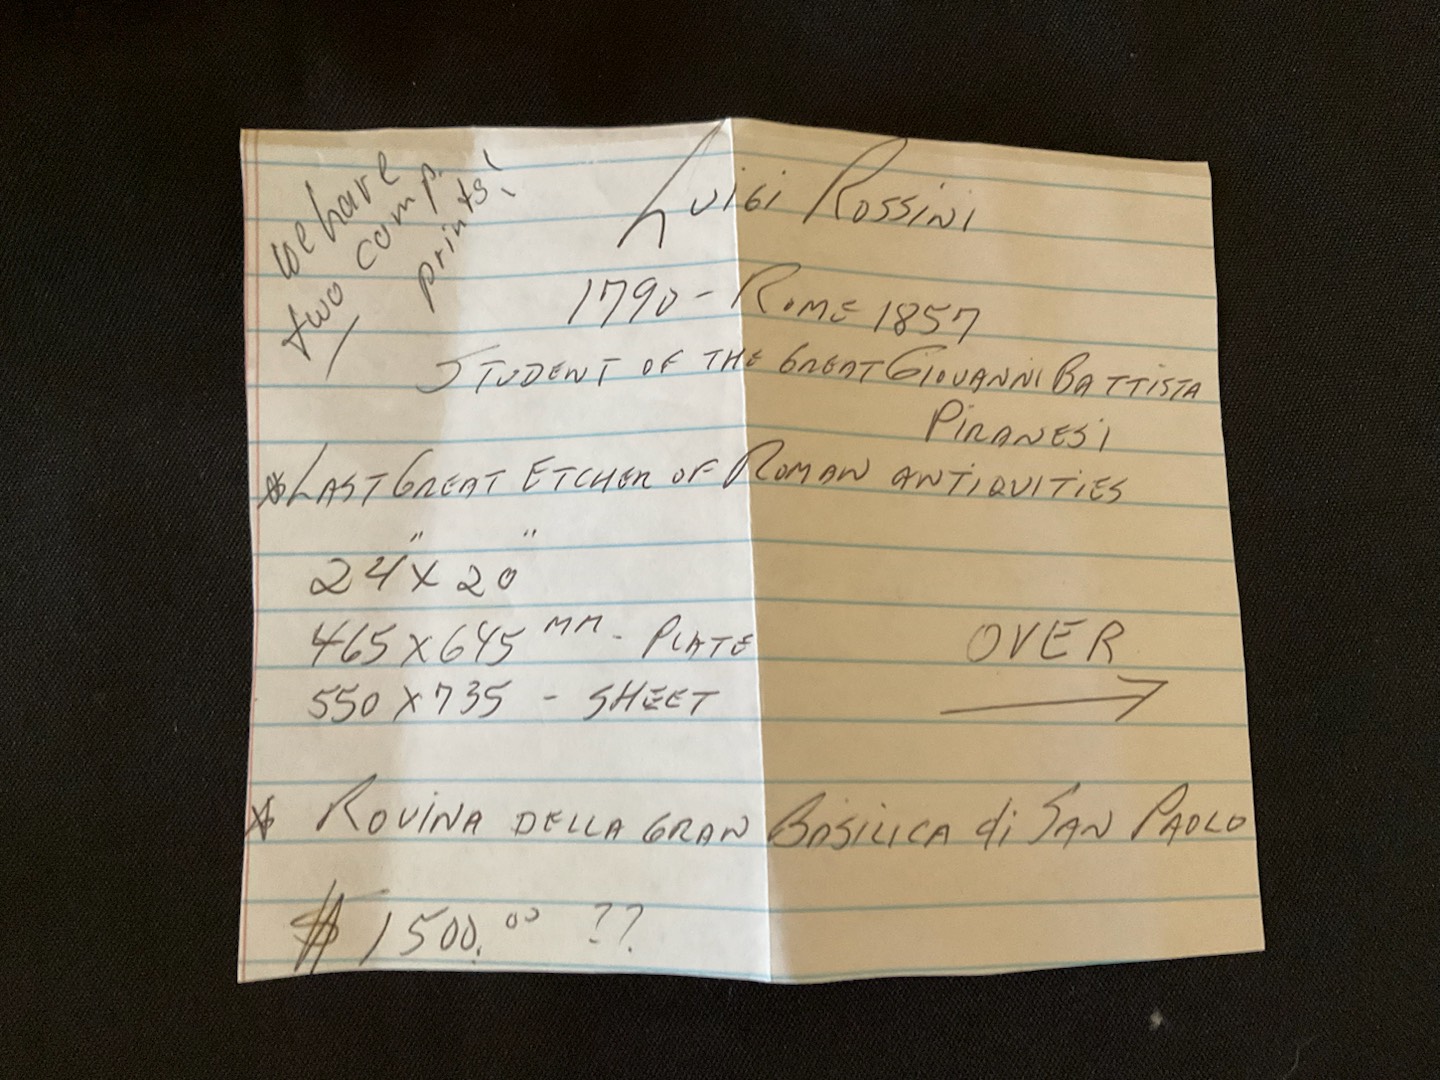 we have
two comp.
prints!
Luigi Rossini
1790 - Rome 1857
STUDENT OF THE GREAT GIOVANNI BATTISTA
PIRANESI
* LAST GREAT ETCHER OF ROMAN ANTIQUITIES
24" x 20"
465 x 645 MM - PLATE
550 x 735 - SHEET
OVER
* ROVINA DELLA GRAN BASILICA di SAN PAOLO
$ 1500.00 ??